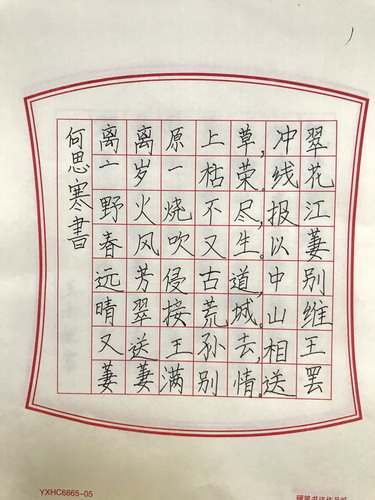 离离原上草,冲翠
亠岁一枯荣。线花
野火烧不尽,报江
春风吹又生。以萋
远芳侵古道,中别
晴翠接荒城。山维
又送王孙去,相王
萋萋满别情。送罢
何思寒書
YXHC6865-05